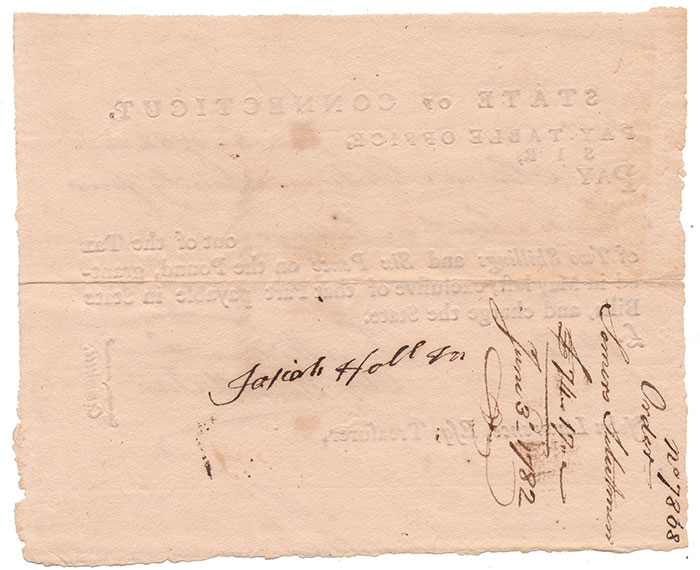 STATE OF CONNECTICUT
PAY-TABLE OFFICE,
SIR,
PAY
out of the Tax
of Two Shillings and Six Pence on the Pound, grant-
ed in May last, exclusive of that Part payable in State
Bills, and charge the State.
£
Esq; Treasurer,
Josiah Holl
No 7868
Order
Somers Selectmen
£ 74 17
June 3 1782